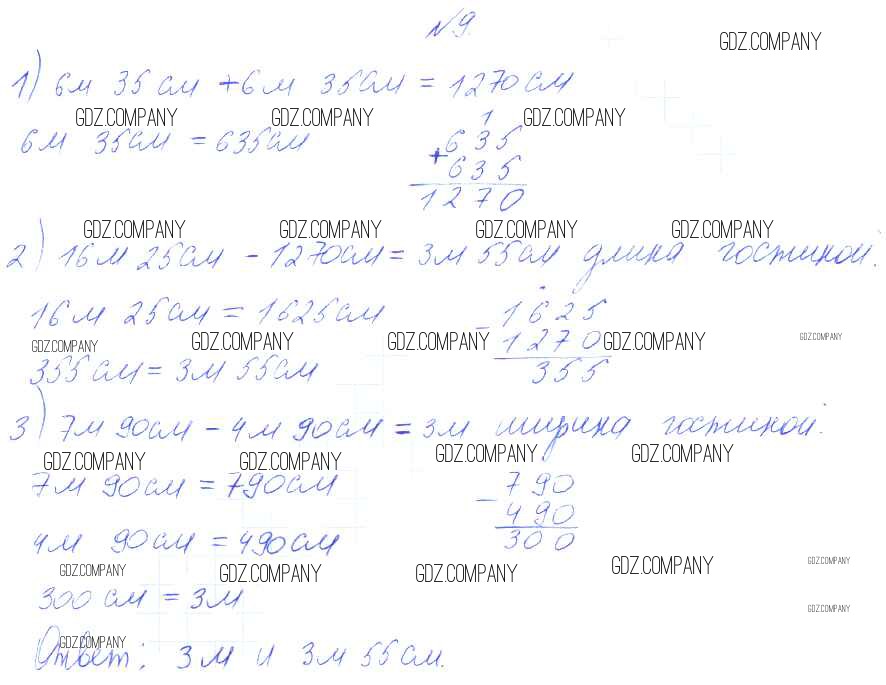 №9.
GDZ.COMPANY
1) 6м 35см + 6м 35см = 1270см
GDZ.COMPANY GDZ.COMPANY GDZ.COMPANY
6м 35см = 635см
1
+ 635
635
1270
GDZ.COMPANY GDZ.COMPANY GDZ.COMPANY GDZ.COMPANY
2) 16м 25см - 1270см = 3м 55см длина гостиной.
16м 25см = 1625см
- 1625
1270
355
GDZ.COMPANY GDZ.COMPANY GDZ.COMPANY GDZ.COMPANY GDZ.COMPANY
355см = 3м 55см
3) 7м 90см - 4м 90см = 3м ширина гостиной.
GDZ.COMPANY GDZ.COMPANY GDZ.COMPANY GDZ.COMPANY
7м 90см = 790см
- 790
490
300
4м 90см = 490см
GDZ.COMPANY GDZ.COMPANY GDZ.COMPANY GDZ.COMPANY GDZ.COMPANY
300см = 3м
GDZ.COMPANY
GDZ.COMPANY
Ответ: 3м и 3м 55см.